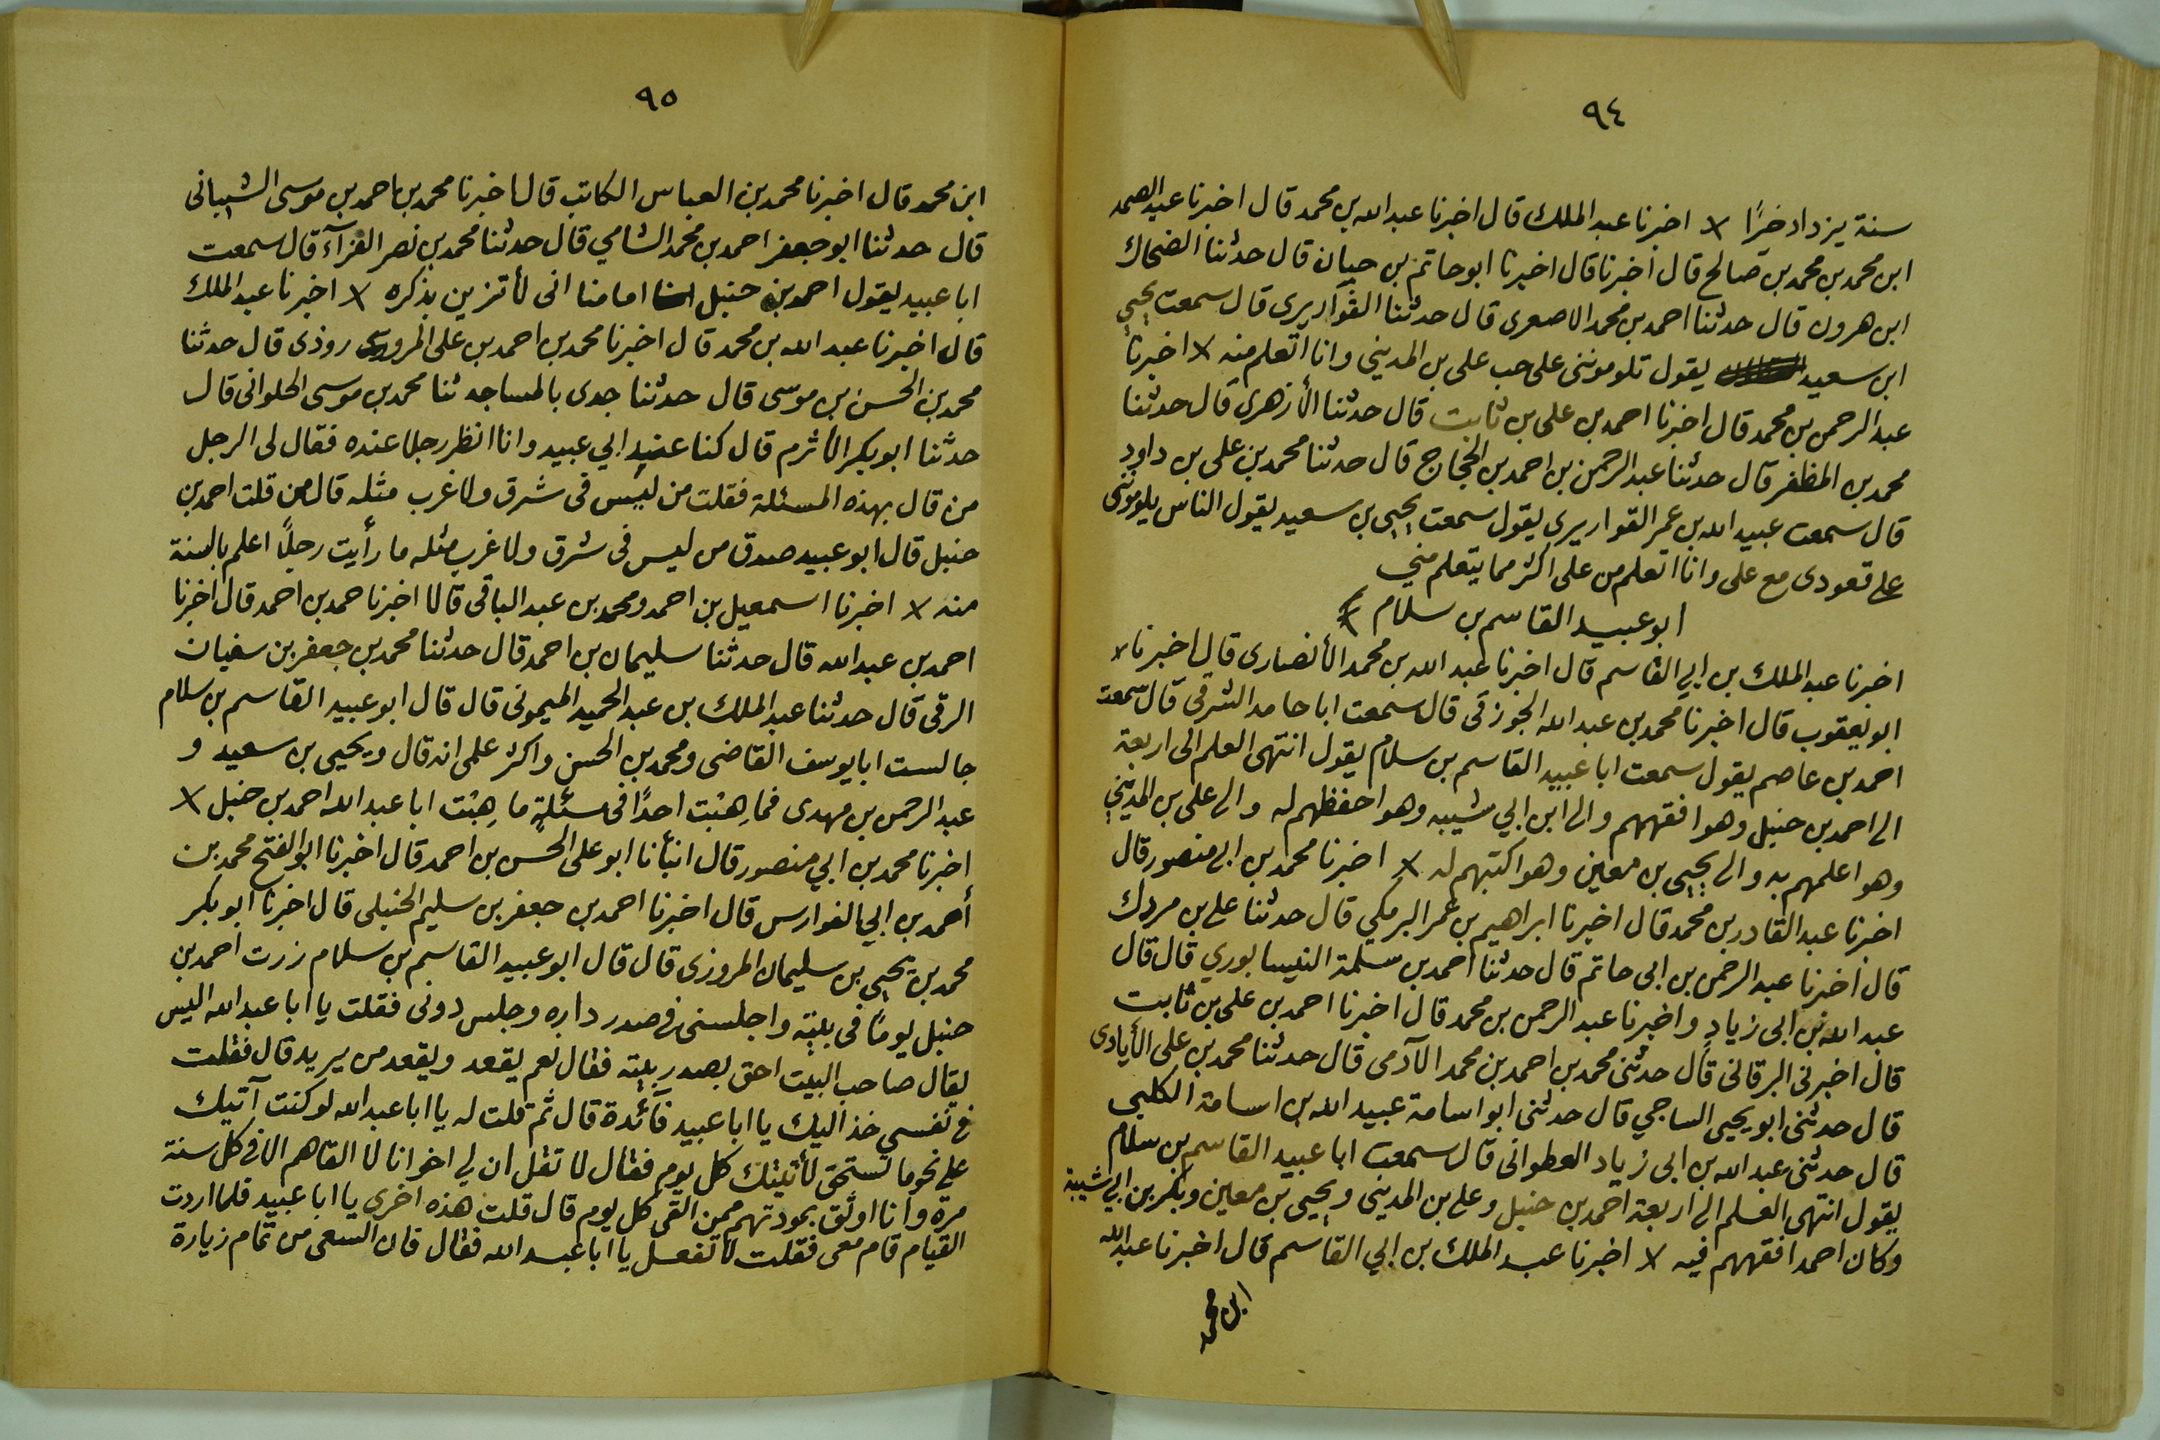 ٩٤
سنة يزداد خزًا × اخبرنا عبد الملك قال اخبرنا عبد الله بن محمد قال اخبرنا عبد الصمد
ابن محمد بن محمد بن صالح قال اخبرنا قال اخبرنا ابو حاتم بن حبان قال حدثنا الضحاك
ابن هرون قال حدثنا احمد بن محمد الاصعرى قال حدثنا القواريرى قال سمعت يحيى
ابن سعيد يقول تلوموننى على حب على بن المدينى وانا اتعلم منه × اخبرنا
عبد الرحمن بن محمد قال اخبرنا احمد بن على بن ثابت قال حدثنا الأزهرى قال حدثنا
محمد بن المظفر قال حدثنا عبد الرحمن بن احمد بن الحجاج قال حدثنا محمد بن على بن داود
قال سمعت عبيد الله بن عمر القواريرى يقول سمعت يحيى بن سعيد يقول الناس يلوموننى
على قعودى مع على وانا اتعلم من على اكثر مما يتعلم منى
ابو عبيد القاسم بن سلام ×
اخبرنا عبد الملك بن ابى القاسم قال اخبرنا عبد الله بن محمد الأنصارى قال اخبرنا
ابو يعقوب قال اخبرنا محمد بن عبد الله الجوزقى قال سمعت ابا حامد الشرقى قال سمعت
احمد بن عاصم يقول سمعت ابا عبيد القاسم بن سلام يقول انتهى العلم الى اربعة
الى احمد بن حنبل وهو افقههم والى ابن ابى شيبه وهو احفظهم له والى على بن المدينى
وهو اعلمهم به والى يحيى بن معين وهو اكتبهم له × اخبرنا محمد بن ابى منصور قال
اخبرنا عبد القادر بن محمد قال اخبرنا ابراهيم بن عمر البرمكى قال حدثنا على بن مردك
قال اخبرنا عبد الرحمن بن ابى حاتم قال حدثنا احمد بن سلمة النيسابورى قال قال
عبد الله بن ابى زياد واخبرنا عبد الرحمن بن محمد قال اخبرنا احمد بن على بن ثابت
قال اخبرنى البرقانى قال حدثنى محمد بن احمد بن محمد الآدمى قال حدثنا محمد بن على الأيادى
قال حدثنى ابو يحيى الساجي قال حدثنى ابو اسامة عبيد الله بن اسامة الكلبى
قال حدثنى عبد الله بن ابى زياد العطوانى قال سمعت ابا عبيد القاسم بن سلام
يقول انتهى العلم الى اربعة احمد بن حنبل وعلى بن المدينى ويحيى بن معين وبكر بن ابى شيبة
وكان احمد افقههم فيه × اخبرنا عبد الملك بن ابى القاسم قال اخبرنا عبد الله
ابن محمد
٩٥
ابن محمد قال اخبرنا محمد بن العباس الكاتب قال اخبرنا محمد بن احمد بن موسى الشيبانى
قال حدثنا ابو جعفر احمد بن محمد الشامي قال حدثنا محمد بن نصر الفرآء قال سمعت
ابا عبيد يقول احمد بن حنبل امامنا انى لأتزين بذكره × اخبرنا عبد الملك
قال اخبرنا عبد الله بن محمد قال اخبرنا محمد بن احمد بن على المروروذى قال حدثنا
محمد بن الحسن بن موسى قال حدثنا جدى بالمساجد ثنا محمد بن موسى الحلوانى قال
حدثنا ابو بكر الأثرم قال كنا عند ابي عبيد وانا انظر رجلا عنده فقال لى الرجل
من قال بهذه المسئلة فقلت من ليس فى شرق ولا غرب مثله قال من قلت احمد بن
حنبل قال ابو عبيد صدق من ليس فى شرق ولا غرب مثله ما رأيت رجلًا اعلم بالسنة
منه × اخبرنا اسمعيل بن احمد ومحمد بن عبد الباقى قالا اخبرنا حمد بن احمد قال اخبرنا
احمد بن عبد الله قال حدثنا سليمان بن احمد قال حدثنا محمد بن جعفر بن سفيان
الرقى قال حدثنا عبد الملك بن عبد الحميد الميمونى قال قال ابو عبيد القاسم بن سلام
جالست ابا يوسف القاضى ومحمد بن الحسن واكثر علمى انه قال ويحيى بن سعيد و
عبد الرحمن بن مهدى فما هِبْت احدًا فى مسئلةٍ ما هِبْت ابا عبد الله احمد بن حنبل ×
اخبرنا محمد بن ابي منصور قال انبأنا ابو على الحسن بن احمد قال اخبرنا ابو الفتح محمد بن
أحمد بن ابي الفوارس قال اخبرنا احمد بن جعفر بن سليم الحنبلى قال اخبرنا ابو بكر
محمد بن يحيى بن سليمان المروزى قال قال ابو عبيد القاسم بن سلام زرت احمد بن
حنبل يومًا فى بيته واجلسنى فى صدر داره وجلس دونى فقلت يا ابا عبد الله اليس
يقال صاحب البيت احق بصدر بيته فقال نعم يقعد ويقعد من يريد قال فقلت
فى نفسي خذ اليك يا ابا عبيد فآئدة قال ثم قلت له يا ابا عبد الله لو كنت آتيك
على نحو ما تستحق لأتيتك كل يوم فقال لا تقل ان لي اخوانا لا القاهم الا فى كل سنة
مرة وانا اوثق بمودتهم ممن القى كل يوم قال قلت هذه اخرى يا ابا عبيد فلما اردت
القيام قام معى فقلت لا تفعل يا ابا عبد الله فقال فان السعى من تمام زيارة